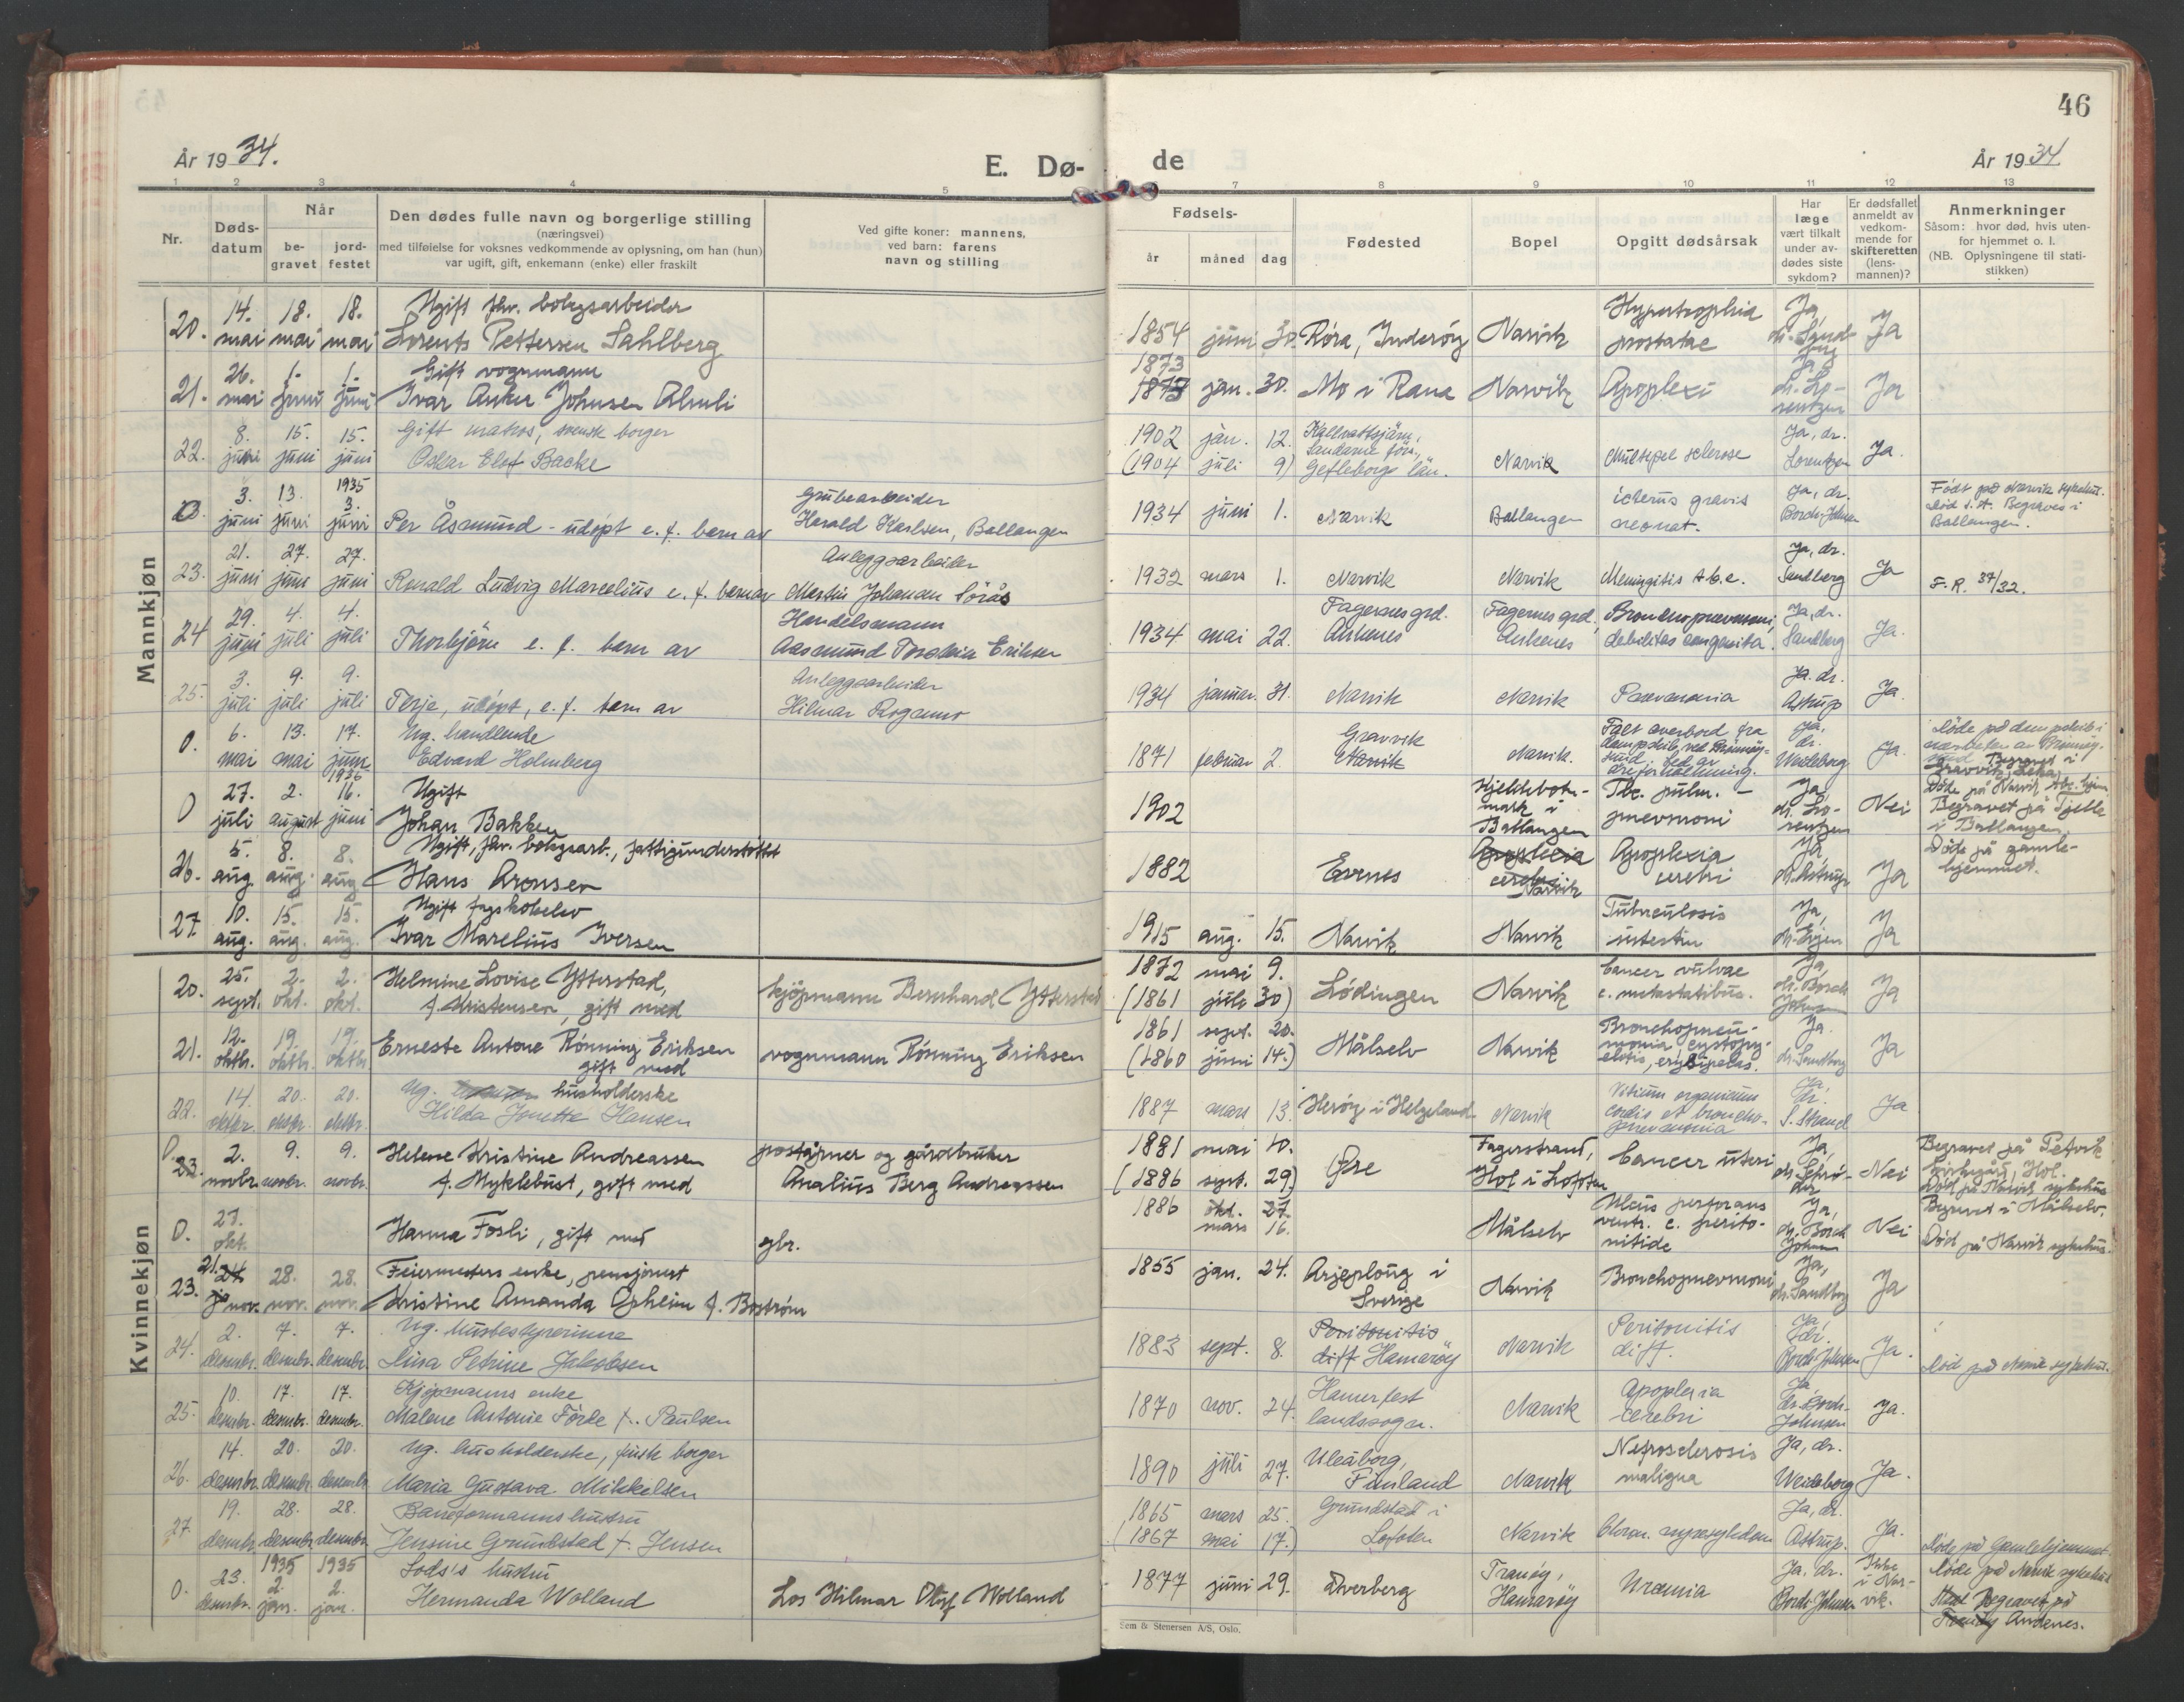 46
År 1934.
E. Dø-
de
År 1934
1 2 3 4 5 7 8 9 10 11 12 13
Nr.
Døds-
datum
Når
be-
gravet
jord-
festet
Den dødes fulle navn og borgerlige stilling
(næringsvei)
med tilføielse for voksnes vedkommende av oplysning, om han (hun)
var ugift, gift, enkemann (enke) eller fraskilt
Ved gifte koner: mannens,
ved barn: farens
navn og stilling
Fødsels-
år
måned
dag
Fødested
Bopel
Opgitt dødsårsak
Har
læge
vært tilkalt
under av-
dødes siste
sykdom?
Er dødsfallet
anmeldt av
vedkom-
mende for
skifteretten
(lens-
mannen)?
Anmerkninger
Såsom: hvor død, hvis uten-
for hjemmet o. l.
(NB. Oplysningene til stati-
stikken)
Mannkjøn
14. 18. 18. Ugift fhv. bolagsarbeider
20. mai mai mai Lorents Pettersen Sahlberg
1854 juni 30. Røra, Inderøy Narvik Hypertrophia
prostatae Ja, dr. Sand- Ja
26. 1. 1. Gift vognmann
21. mai juni juni Ivar Anker Johnsen
1873
jan. 30. Mo i Rana Narvik Apoplexi Ja, dr. Lo-
rentzen Ja
8. 15. 15. Gift matros, svensk borger
22. juni juni juni Oskar Elof Backe
1902 jan. 12.
(1904 juli 9) Gefleborgs län. Narvik Multipel sclerose Ja, dr.
Lorentzen Ja.
1935
3. 13. 3. Grubearbeider
23. juni juni juni Per Åsmund - udøpt e. f. barn av Harald Karlsen, Ballangen
1934 juni 1. Narvik Ballangen icterus gravis
neonat. Ja, dr.
Borch-Johnsen
Født på Narvik sykehus.
Død s. st. Begraves i
Ballangen.
21. 27. 27. Anleggsarbeider
23. juni juni juni Ronald Ludvig Marcelius e. f. barn av Martin Johannes Sörås
1932 mars 1. Narvik Narvik Meningitis tbc. Ja, dr.
Sandberg Ja F.R. 37/32.
29. 4. 4. Handelsmann
24 juni juli juli Thorbjörn e. f. barn av Aasmund Torstein Eriksen
1934 mai 22. Fagernesgrd.
Ankenes Fagernesgrd.,
Ankenes Bronchopnevmoni,
debilitas congenita. Ja, dr.
Sandberg Ja.
3. 9. 9. Anleggsarbeider
25. juli juli juli Terje, udøpt, e. f. barn av Hilmar Rogamo
1934 januar. 31. Narvik Narvik Pnevmonia Ja. dr.
Astrup Ja.
6. 13. 17. Ug. handlende
0. mai mai juni Edvard Holmberg
1871 februar 2. Gravvik
Narvik Narvik. Falt overbord fra
dampskib ved Brønnøy-
sund Ja,
dr.
Weideborg Ja.
Døde på dampskib i
nærheten av Brønnøy-
sund Begravet i
Gravvik, Leka
1936
27. 2. 16. Ugift
0 juli august juni Johan Bakken
1902 Kjeldebotn-
mark i
Ballangen Tbc. pulm. -
pnevmoni Ja,
dr. Lo-
rentzen Nei
Døde på Narvik tbc. hjem
Begravet på Kjelde
i Ballangen.
5. 8. 8. Ugift, fhv. bolagsarb., fattigunderstöttet
26. aug. aug. aug. Hans Aronsen
1882 Evenes Apoplexia
cerebri
Narvik Apoplexia
cerebri Ja,
dr. Astrup Ja
Døde på gamle-
hjemmet.
10. 15. 15. Ugift
27. aug. aug. aug. Ivar Marelius Iversen
1915 aug. 15. Narvik Narvik Tuberculosis
intestin Ja, Ja
Kvinnekjøn
25. 2. 2. Helmine Lovise Ytterstad,
20. sept. okt. okt. f. Kristensen, gift med kjøpmann Bernhard Ytterstad
1872 mai 9.
(1861 juli 30) Lødingen Narvik Cancer vulvae
c. metastatibus. Ja,
dr. Borch
Johnsen Ja
12. 19. 19. Erneste Antone Rønning Eriksen
21. oktbr. oktbr. oktbr. gift med vognmann Rønning Eriksen
1861 sept. 20.
(1860 juni 14.) Målselv Narvik Bronchopneu-
monia, cystopy-
elitis, erysipelas. Ja.
dr. Sandberg Ja
14. 20. 20. Ug. husholderske
22. oktbr. oktbr. oktbr. Hilda Jonette Hansen
1887 mars 13. Herøy i Helgeland Narvik Vitium organicum
cordis et broncho-
pnevmonia Ja,
dr.
S. Strand Ja
0. 2. 9. 9. Helene Kristine Andreassen poståpner og gårdbruker
23. novbr. novbr. novbr. f. Myklebust, gift med Analius Berg Andreassen
1881 mai 10.
(1886 sept. 29.) Øre Fagerstrand,
Hol i Lofoten Cancer uteri Ja, Nei
Begravet på Petvik
kirkegård, Hol.
Død på Narvik sykehus
27.
0. okt. Hanna Fosli, gift med gbr.
1886 okt. 27.
mars 16. Målselv Ulcus perforans
ventr. c. perito-
nitide Ja,
dr. Borch
Johnsen Nei
Begravet i Målselv.
Død på Narvik sykehus.
21. 24 28. 28. Feiermesters enke, pensjonert
23. nov. nov. nov. Kristine Amanda Opheim f. Boström
1855 jan. 24. Arjeplong i
Sverige Narvik Bronchopnevmoni Ja,
dr. Sandberg Ja
2. 7. 7. Ug. husbestyrerinne
24. desembr. desembr. desembr. Lina Petrine Jakobsen
1883 sept. 8. Peritonitis
diff. Hamarøy Narvik Peritonitis
diff. Ja,
dr.
Borch-Johnsen Ja.
Død på Narvik sykehus.
10. 17. 17. Kjøpmanns enke
25. desembr. desembr. desembr. Malene Antonie Förde f. Paulsen
1870 nov. 24. Hamerfest
landssogn. Narvik Apoplexia
cerebri Ja,
dr. Borch-
Johnsen Ja.
14. 20. 20. Ug. husholderske, finsk borger
26. desembr. desembr. desembr. Maria Gustava Mikkelsen
1890 juli 27. Uleåborg,
Finland Narvik Nefrosclerosis
maligna Ja, dr.
Weideborg Ja.
19. 28. 28. Baneformanns hustru
27. desembr. desembr. desembr. Jensine Grundstad f. Jensen
1865 mars 25.
(1867 mai 17.) Grundstad i
Lofoten Narvik Chron. myxoedem Ja, dr.
Astrup. Ja.
Døde på Gamlehjemmet.
1935 1935
23. 2. 2. Lods's hustru
0. desembr. jan. jan. Hermanda Wolland Los Hilmar Oluf Wolland
1877 juni 29. Dverberg Tranøy,
Hamarøy Uræmia Ja. dr.
Borch-Johnsen Ikke
i Nar-
vik.
Døde på Narvik sykehus
Begravet på
Andenes.
Sem & Stenersen A/S, Oslo.